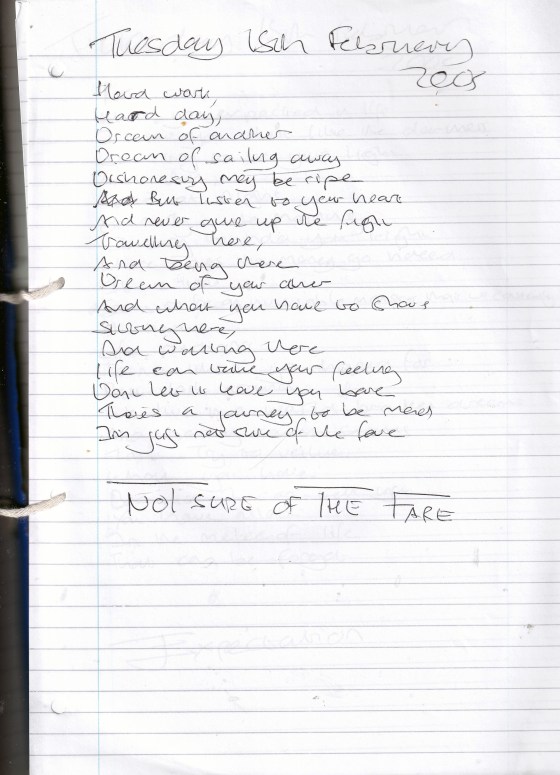 Tuesday 15th February
2005
Hard work,
Hard day,
Dream of another
Dream of sailing away
Dishonesty may be ripe
But listen to your heart
And never give up the fight
Travelling here,
And being there
Dream of your other
And what you have to share
Sitting here,
And there
Life can take your feeling
Dont let it leave you bare
Theres a journey to be made
Im just not sure of the fare
NOT SURE OF THE FARE